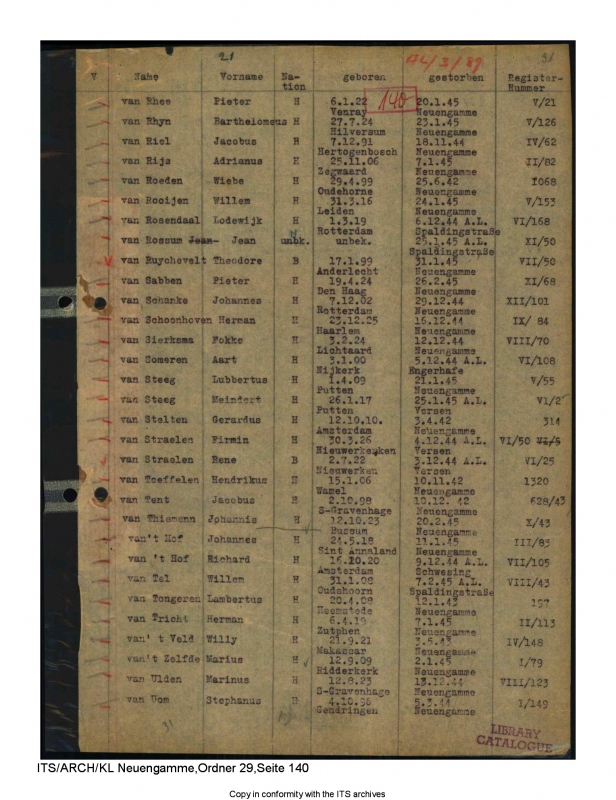 21 AL/3/89 31
V Name Vorname Na- geboren gestorben Register-
tion Nummer
140
van Rhee Pieter H 6.1.22 20.1.45 V/21
Venray Neuengamme
van Rhyn Bartholomeus H 27.7.24 23.1.45 V/126
Hilversum Neuengamme
van Riel Jacobus H 7.12.91 18.11.44 IV/62
Hertogenbosch Neuengamme
van Rijs Adrianus H 25.11.06 7.1.45 II/82
Zegwaard Neuengamme
van Roeden Wiebe H 29.4.99 25.6.42 1068
Oudehorne Neuengamme
van Rooijen Willem H 31.3.16 24.1.45 V/153
Leiden Neuengamme
van Rosendaal Lodewijk H 1.3.19 6.12.44 A.L. VI/168
Rotterdam Spaldingstraße
van Rossum Jean- Jean unbk. unbek. 25.1.45 A.L. XI/50
Spaldingstraße
van Ruychevelt Theodore B 17.1.99 31.1.45 VII/50
Anderlecht Neuengamme
van Sabben Pieter H 19.4.24 26.2.45 XI/68
Den Haag Neuengamme
van Schanke Johannes H 7.12.02 29.12.44 XII/101
Rotterdam Neuengamme
van Schoonhoven Herman H 23.12.25 16.12.44 IX/ 84
Haarlem Neuengamme
van Sierksma Fokke H 3.2.24 12.12.44 VIII/70
Lichtaard Neuengamme
van Someren Aart H 3.1.00 5.12.44 A.L. VI/108
Nijkerk Engerhafe
van Steeg Lubbertus H 1.4.09 21.1.45 V/55
Putten Neuengamme
van Steeg Meindert H 26.1.17 25.1.45 A.L. VI/2
Putten Versen
van Stelten Gerardus H 12.10.10. 3.4.42 314
Amsterdam Neuengamme
van Straelen Firmin H 30.3.26 4.12.44 A.L. VI/50
Nieuwerkerken Versen
van Straelen Rene B 2.7.22 3.12.44 A.L. VI/25
Nieuwerken Versen
van Teeffelen Hendrikus H 15.1.06 10.11.42 1320
Wamel Neuengamme
van Tent Jacobus H 2.10.98 10.12. 42 628/43
S-Gravenhage Neuengamme
van Thiemann Johannis H 12.10.23 20.2.45 X/43
Bussum Neuengamme
van't Hof Johannes H 24.5.18 11.1.45 III/83
Sint Annaland Neuengamme
van 't Hof Richard H 16.10.20 9.12.44 A.L. VII/105
Amsterdam Schwesing
van Tel Willem H 31.1.08 7.2.45 A.L. VIII/43
Oudshoorn Spaldingstraße
van Tongeren Lambertus H 20.4.08 12.1.43 197
Heemstede Neuengamme
van Tricht Herman H 6.4.19 7.1.45 II/113
Zutphen Neuengamme
van' t Veld Willy H 21.9.21 3.5.43 IV/148
Makassar Neuengamme
van't Zelfde Marius H 12.9.09 2.1.45 I/79
Ridderkerk Neuengamme
van Ulden Marinus H 12.8.23 13.12.44 VIII/123
S-Gravenhage Neuengamme
van Uom Stephanus H 4.10.96 5.3.44 I/149
Gendringen Neuengamme
31
LIBRARY
CATALOGUE
ITS/ARCH/KL Neuengamme,Ordner 29,Seite 140
Copy in conformity with the ITS archives